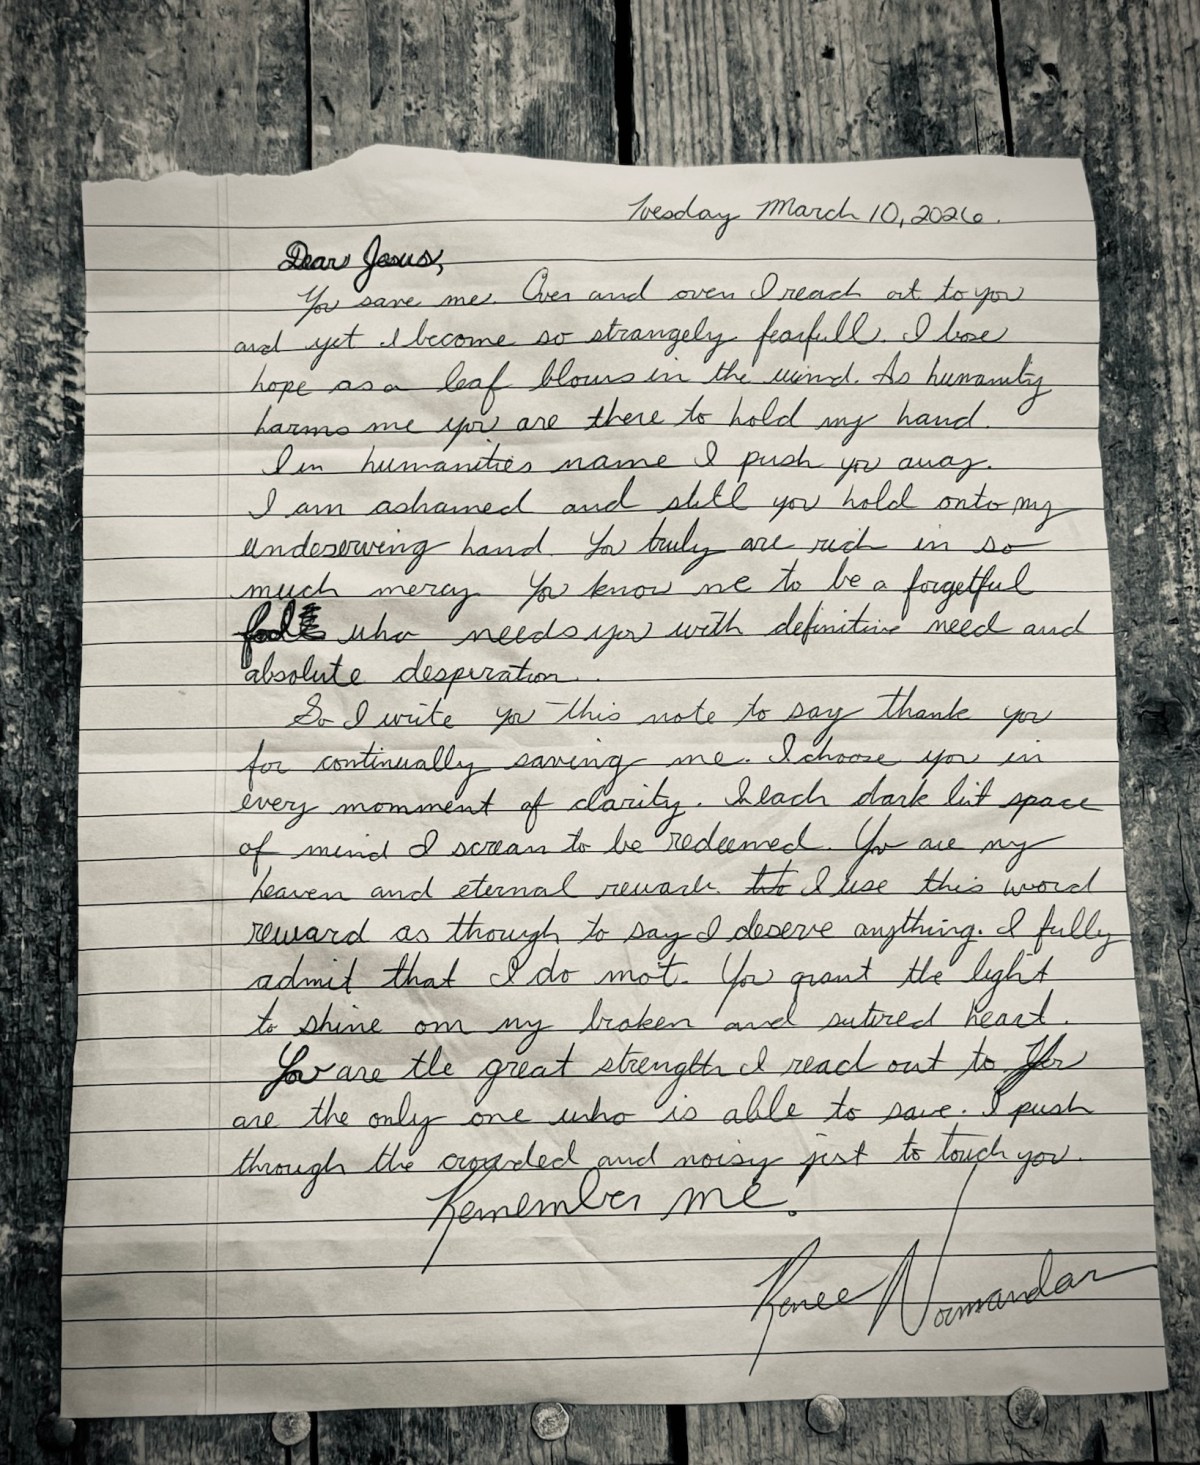 Tuesday March 10, 2026.
Dear Jesus,
You save me. Over and over I reach out to you
and yet I become so strangely fearfull. I lose
hope as a leaf blows in the wind. As humanity
harms me you are there to hold my hand.
In humanities name I push you away.
I am ashamed and still you hold onto my
undeserving hand. You truly are rich in so
much mercy. You know me to be a forgetful
fool who needs you with definitive need and
absolute desperation..
So I write you this note to say thank you
for continually saving me. I choose you in
every momment of clarity. In each dark lit space
of mind I scream to be redeemed. You are my
heaven and eternal reward. I use this word
reward as though to say I deserve anything. I fully
admit that I do not. You grant the light
to shine on my broken and sutured heart.
You are the great strength I reach out to. You
are the only one who is able to save. I push
through the crowded and noisy just to touch you.
Remember me!
Renee Normandar